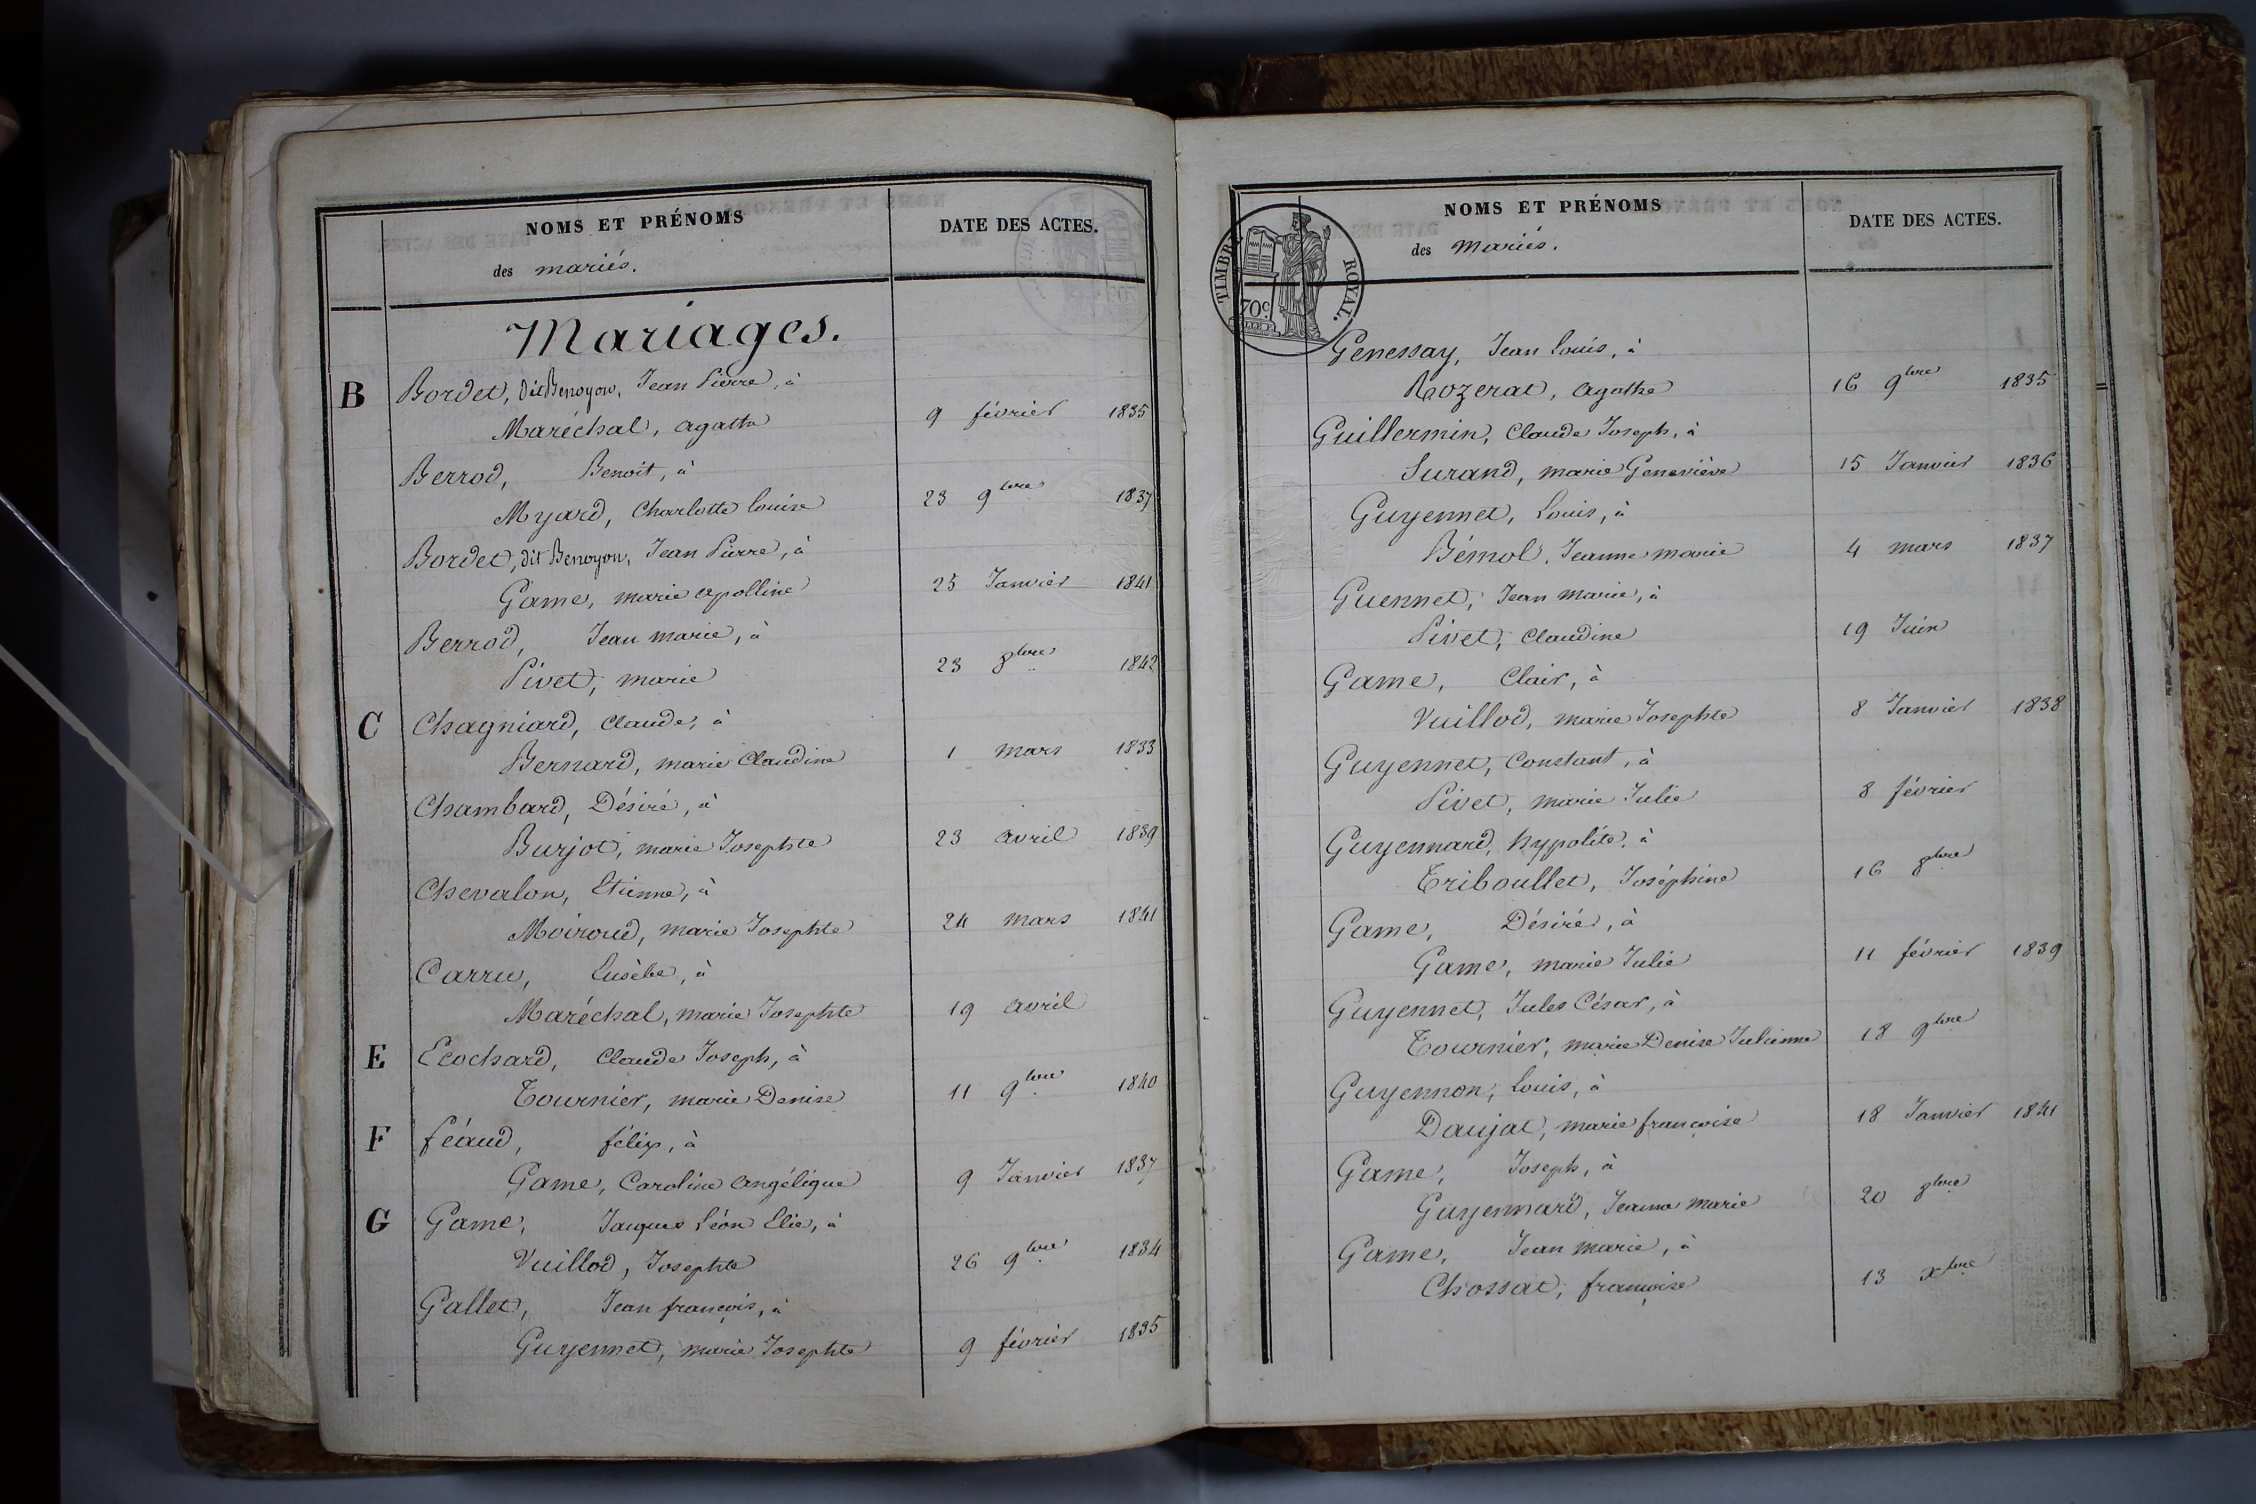 NOMS ET PRÉNOMS
des mariés.
DATE DES ACTES.
Mariages.
B Bordet, dit Benoyon, Jean Pierre, à
Maréchal, agathe 9 février 1835
Berrod, Benoit, à
Myard, Charlotte louise 23 9bre 1837
Bordet, dit Benoyon, Jean Pierre, à
Game, marie apolline 25 Janvier 1841
Berrod, Jean marie, à
Pivet, marie 23 8bre 1842
C Chagniard, Claude, à
Bernard, marie Claudine 1 mars 1833
Chambard, Désiré, à
Burjot, marie Josephte 23 avril 1839
Chevalon, Etienne, à
Moiroud, marie Josephte 24 mars 1841
Carru, Eusèbe, à
Maréchal, marie Josephte 19 avril
E Ecochard, Claude Joseph, à
Tournier, marie Denise 11 9bre 1840
F féaud, félix, à
Game, Caroline angélique 9 Janvier 1837
G Game, Jacques Léon Elie, à
Vuillod, Josephte 26 9bre 1834
Gallet, Jean françois, à
Guyennet, marie Josephte 9 février 1835
NOMS ET PRÉNOMS
des mariés.
DATE DES ACTES.
TIMBRE ROYAL.
70c.
Genessay, Jean Louis, à
Rozerat, agathe 16 9bre 1835
Guillermin, Claude Joseph, à
Surand, marie Geneviève 15 Janvier 1836
Guyennet, Louis, à
Bémol, Jeanne marie 4 mars 1837
Guennet, Jean marie, à
Pivet, Claudine 19 Juin
Game, Clair, à
Vuillod, marie Josephte 8 Janvier 1838
Guyennet, Constant, à
Pivet, marie Julie 8 février
Guyennard, hypolite, à
Triboullet, Joséphine 16 8bre
Game, Désiré, à
Game, marie Julie 11 février 1839
Guyennet, Jules César, à
Tournier, marie Denise Julienne 18 9bre
Guyennon, Louis, à
Daujat, marie françoise 18 Janvier 1841
Game, Joseph, à
Guyennard, Jeanne marie 20 8bre
Game, Jean marie, à
Chossat, françoise 13 xbre